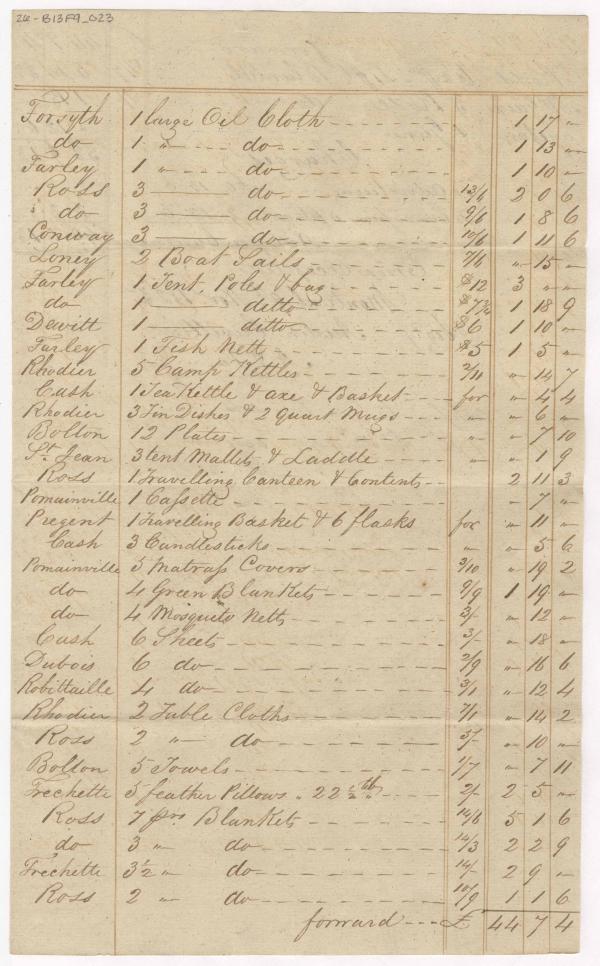 24-B13F9_023
Forsyth 1 large Oil Cloth 1 17 "
do 1 " do 1 13 "
Farley 1 " do 1 10 "
Ross 3 do 13/6 2 0 6
do 3 do 9/6 1 8 6
Conway 3 do 10/6 1 11 6
Loney 2 Boat Sails 7/6 " 15 "
Farley 1 Tent, Poles & bag $12 3 " "
do 1 ditto $7¾ 1 18 9
Dewitt 1 ditto $6 1 10 "
Farley 1 Fish Nett $5 1 5 "
Rhodier 5 Camp Kettles 2/11 " 14 7
Cash 1 Tea Kettle & axe & Basket for " 4 4
Rhodier 3 Tin Dishes & 2 quart Mugs " " 6 "
Bolton 12 Plates " 7 10
St. Jean 3 tent Mallets & Laddle " " 1 9
Ross 1 Travelling Canteen & Contents 2 11 3
Pomainville 1 Cassette " 7 "
Pregent 1 Travelling Basket & 6 flasks for " 11 "
Cash 3 Candlesticks " " 5 6
Pomainville 5 Matrass Covers 3/10 " 19 2
do 4 Green Blankets 9/9 1 19 "
do 4 Mosquito Netts 3/- " 12 "
Cash 6 Sheets 3/- " 18 "
Dubois 6 do 2/9 " 16 6
Robittaille 4 do 3/1 " 12 4
Rhodier 2 Table Cloths 7/1 " 14 2
Ross 2 " do 5/- " 10 "
Bolton 5 Towels 1/7 " 7 11
Frechette 5 feather Pillows " 22½ lb 2/- 2 5 "
Ross 7 prs Blankets 14/6 5 1 6
do 3 " do 14/3 2 2 9
Frechette 3½ " do 14/- 2 9 "
Ross 2 " do 10/9 1 1 6
forward £ 44 7 4